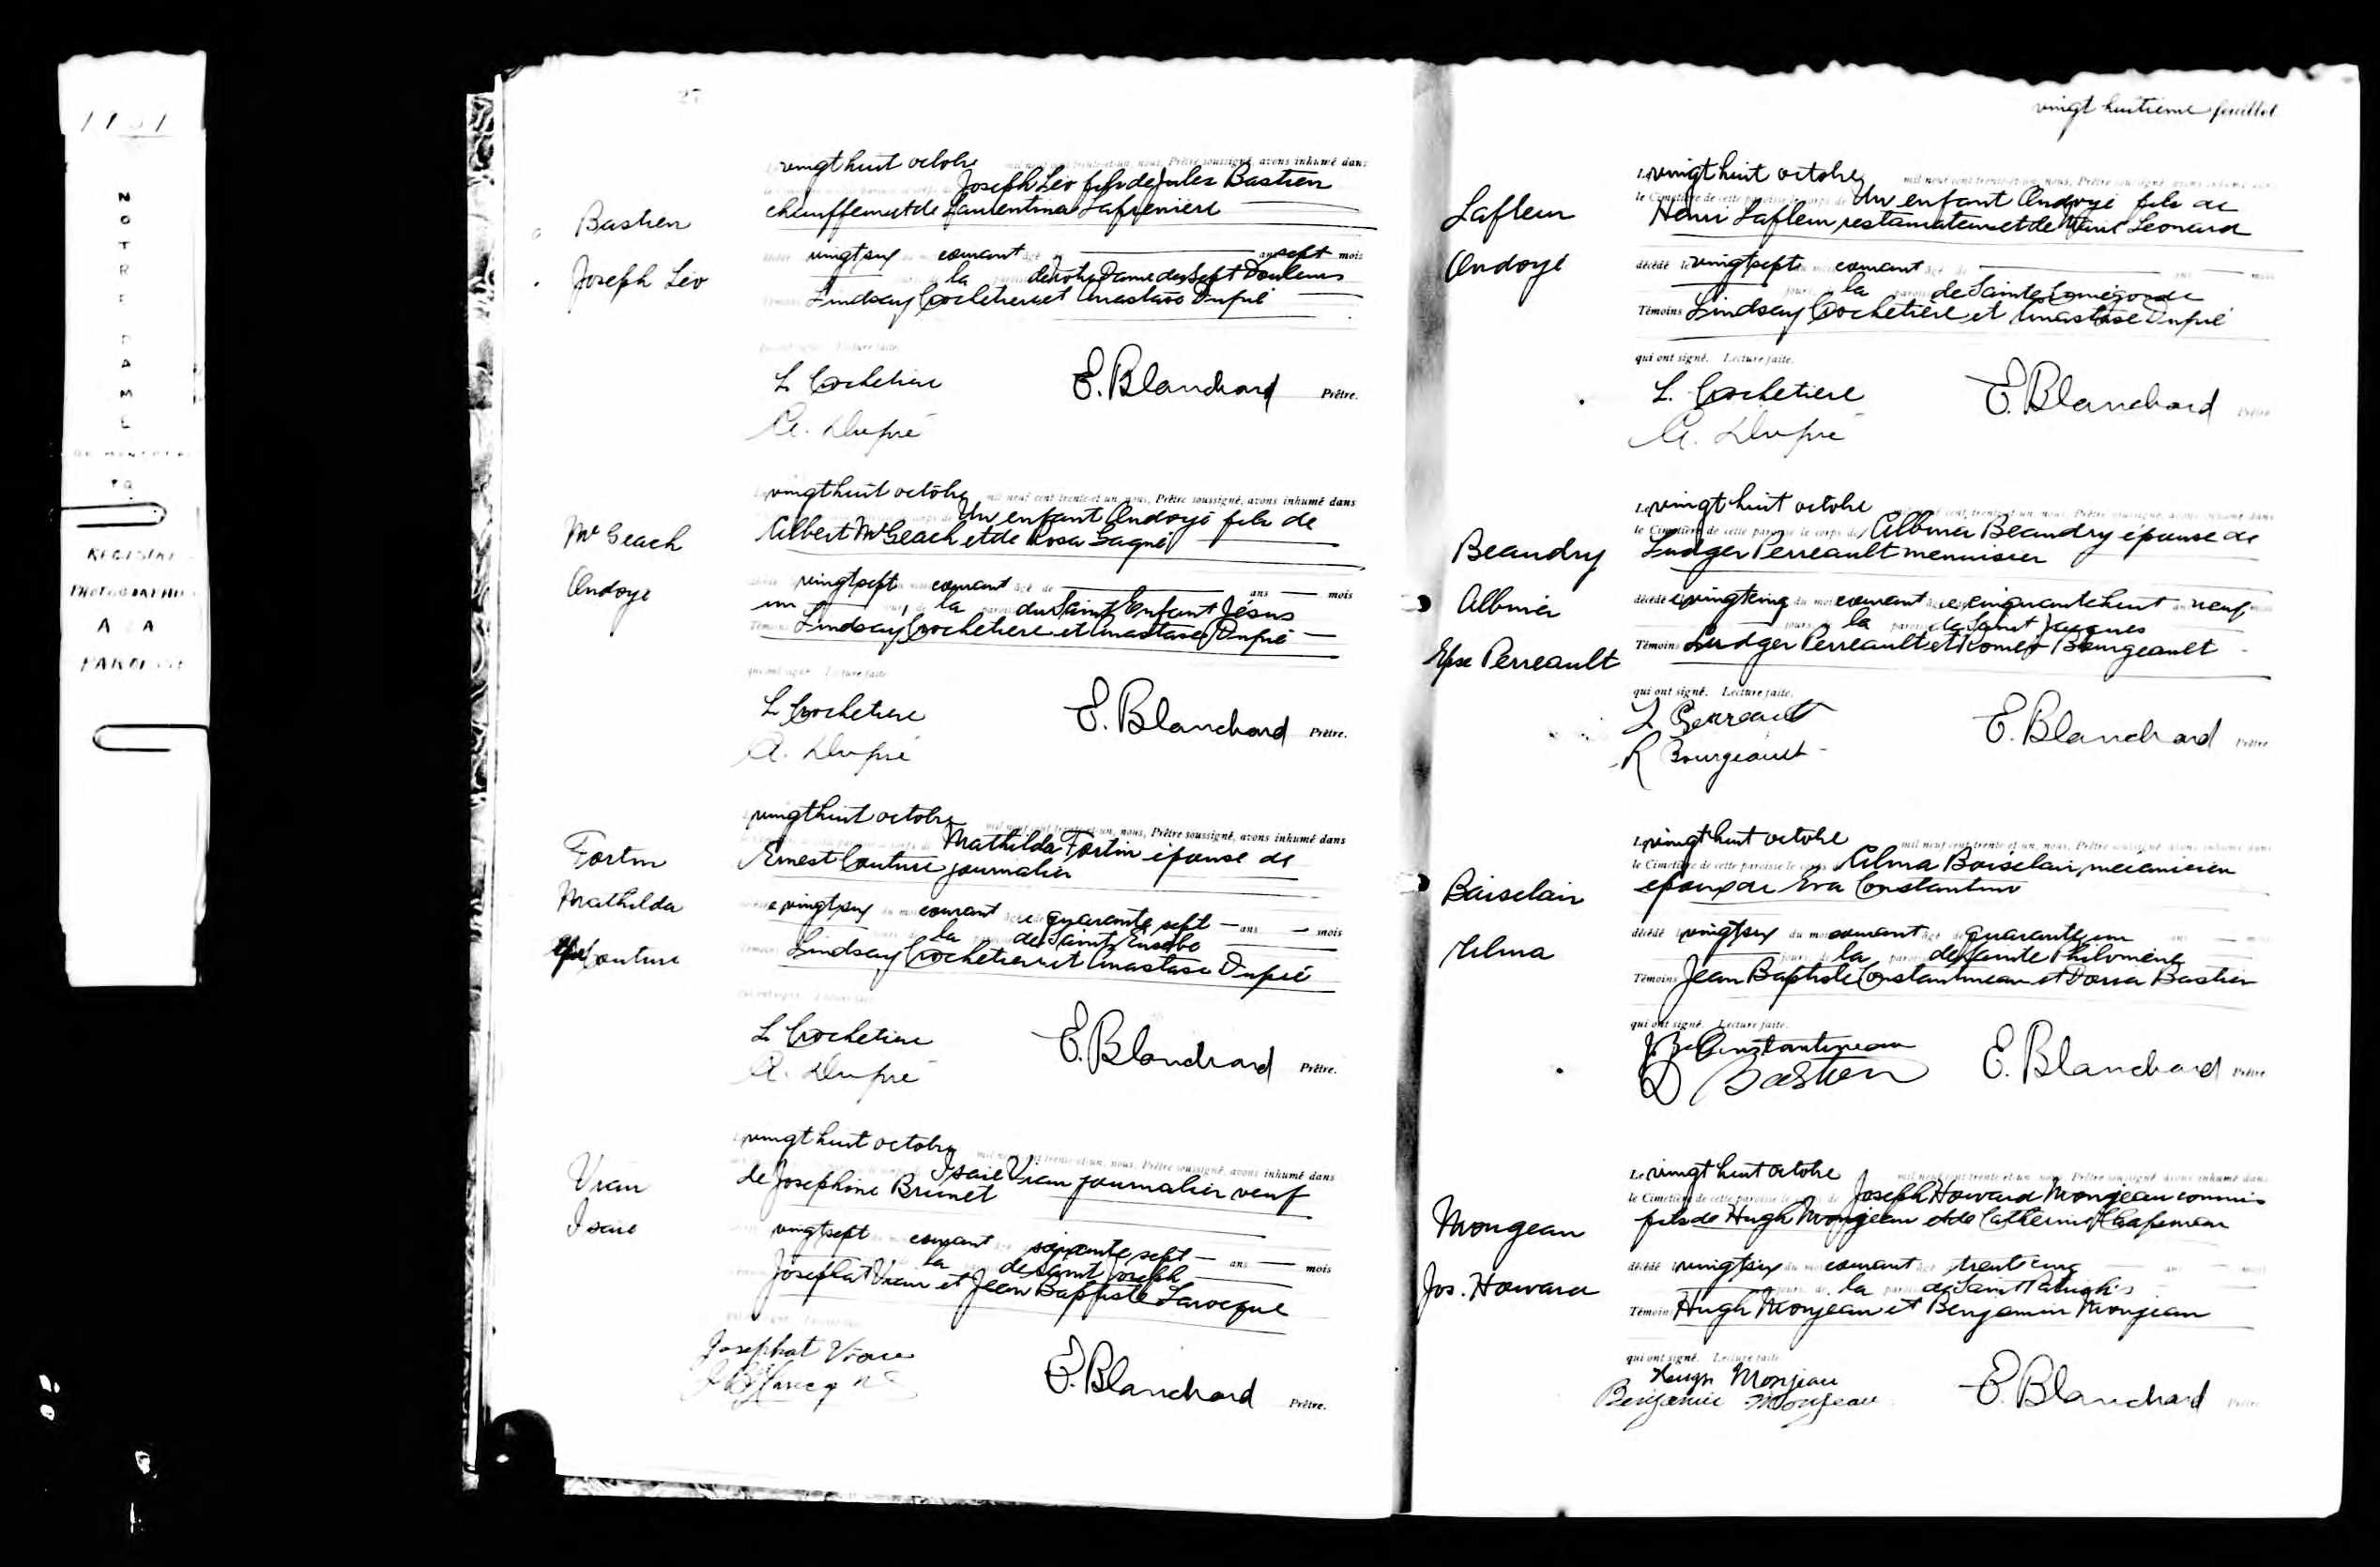 NOTRE DAME
REGISTRE
PHOTOGRAPHIE
A LA
PAROISSE
27
Bastien
Joseph Léo
vingt huit octobre mil neuf cent trente-et-un, nous, Prêtre soussigné, avons inhumé dans
Joseph Léo fils de Jules Bastien
chauffeur et de Laurentina Lafrenière
vingt six courant sept mois
la de Notre Dame des Sept Douleurs
Lindsay Crochetière et Anastase Dupré
L. Crochetiere
E. Blanchard Prêtre.
A. Dupré
McGeach
Ondoyé
vingt huit octobre mil neuf cent trente-et-un, nous, Prêtre soussigné, avons inhumé dans
Un enfant Ondoyé fils de
Albert McGeach et de Rosa Gagné
vingt sept courant âgé de ans mois
un la du Saint Enfant Jésus
Lindsay Crochetiere et Anastase Dupré
qui ont signé. Lecture faite.
L Crochetiere
E. Blanchard Prêtre.
A. Dupré
Fortin
Mathilda
Epse Couture
vingt huit octobre mil neuf cent trente-et-un, nous, Prêtre soussigné, avons inhumé dans
Mathilda Fortin épouse de
Ernest Couture journalier
vingt six courant quarante sept ans mois
la de Saint Eusèbe
Lindsay Crochetiere et Anastase Dupré
L Crochetiere
E. Blanchard Prêtre.
A. Dupré
Viau
Isaie
vingt huit octobre mil neuf cent trente-et-un, nous, Prêtre soussigné, avons inhumé dans
Isaie Viau journalier veuf
de Josephine Brunet
vingt sept courant soixante sept ans mois
la de Saint Joseph
Josephat Viau et Jean Baptiste Larocque
Josephat Viau
E. Blanchard Prêtre.
vingt huitième feuillet
Lafleur
Ondoyé
Le vingt huit octobre mil neuf cent trente-et-un, nous, Prêtre soussigné, avons inhumé dans
le Cimetière de cette paroisse le corps de Un enfant Ondoyé fils de
Henri Lafleur restaurateur et de Marie Leonard
décédé le vingt sept courant âgé de ans mois
la de Sainte Cunégonde
Témoins Lindsay Crochetière et Anastase Dupré
qui ont signé. Lecture faite.
L. Crochetiere
E. Blanchard Prêtre
A. Dupré
Beaudry
Albina
Epse Perreault
Le vingt huit octobre mil neuf cent trente-et-un, nous, Prêtre soussigné, avons inhumé dans
le Cimetière de cette paroisse le corps de Albina Beaudry épouse de
Ludger Perreault menuisier
décédée vingt cinq du mois courant cinquante huit neuf
la de Saint Jacques
Témoins Ludger Perreault et Roméo Bourgeault
qui ont signé. Lecture faite.
L Perreault
E. Blanchard Prêtre
R Bourgeault
Boisclair
Alma
Le vingt huit octobre mil neuf cent trente-et-un, nous, Prêtre soussigné, avons inhumé dans
le Cimetière de cette paroisse le corps Alma Boisclair, mécanicien
époux de Eva Constantineau
décédé vingt six du mois courant âgé de quarante un
la de Sainte Philomène
Témoins Jean Baptiste Constantineau et Doria Bastien
qui ont signé. Lecture faite.
J B Constantineau
E. Blanchard Prêtre
D Bastien
Mongeau
Jos. Howard
Le vingt huit octobre mil neuf cent trente-et-un, nous, Prêtre soussigné, avons inhumé dans
le Cimetière de cette paroisse le corps de Joseph Howard Mongeau commis
fils de Hugh Mongeau et de Catherine Chapman
décédé vingt six du mois courant âgé trente cinq
la de Saint Patrick's
Témoins Hugh Monjeau et Benjamin Monjeau
qui ont signé. Lecture faite.
Hugh Monjeau
E. Blanchard
Benjamin Monjeau